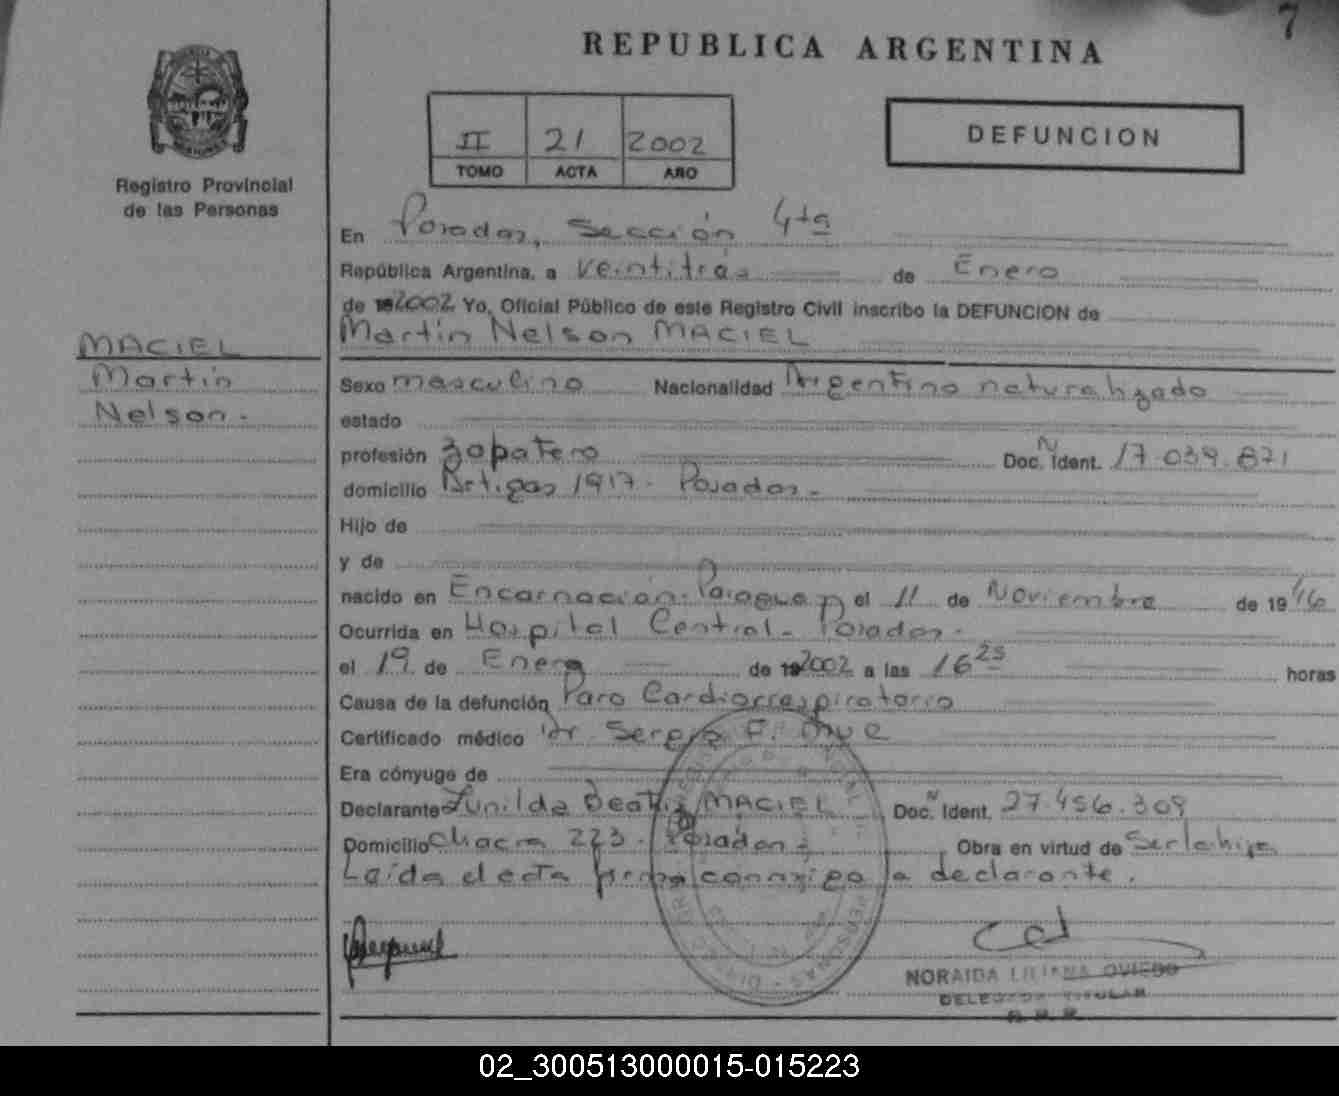 7
REPUBLICA ARGENTINA
II 21 2002
TOMO ACTA AÑO
DEFUNCION
Registro Provincial
de las Personas
MACIEL
Martín
Nelson.-
En Posadas, Sección 4ta
República Argentina, a veintitrás de Enero
de 192002 Yo, Oficial Público de este Registro Civil inscribo la DEFUNCION de
Martín Nelson MACIEL
Sexo masculino Nacionalidad Argentino naturalizado
estado
profesión zapatero Doc. N Ident. 17.039.871
domicilio Artigas 1917- Posadas.-
Hijo de
y de
nacido en Encarnación- Paraguay el 11 de Noviembre de 1946
Ocurrida en Hospital Central- Posadas.-
el 19 de Enero de 192002 a las 16 25 horas
Causa de la defunción Paro Cardiorrespiratorio
Certificado médico Dr. Sergio F.
Era cónyuge de
Declarante Lunilda Beatriz MACIEL Doc. N Ident. 27.456.309
Domicilio Chacra 223- Posadas- Obra en virtud de Ser la hija
Leída el acta firma conmigo la declarante.
NORAIDA LILIANA OVIEDO
DELEGADA TITULAR
02_300513000015-015223